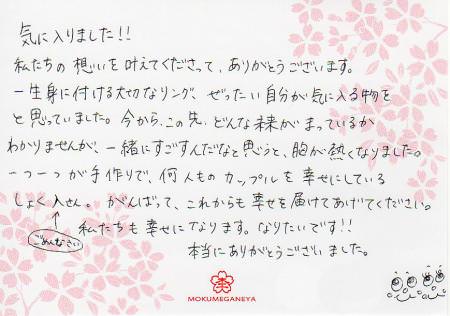 気に入りました!!
私たちの想いを叶えてくださって、ありがとうございます。
一生身に付ける大切なリング、ぜったい自分が気に入る物を
と思っていました。今から、この先、どんな未来がまっているか
わかりませんが、一緒にすごすんだなと思うと、胸が熱くなりました。
一つ一つが手作りで、何人ものカップルを幸せにしている
しょく人さん。がんばって、これからも幸せを届けてあげてください。
ごめんなさい
私たちも幸せになります。なりたいです!!
本当にありがとうございました。
MOKUMEGANEYA